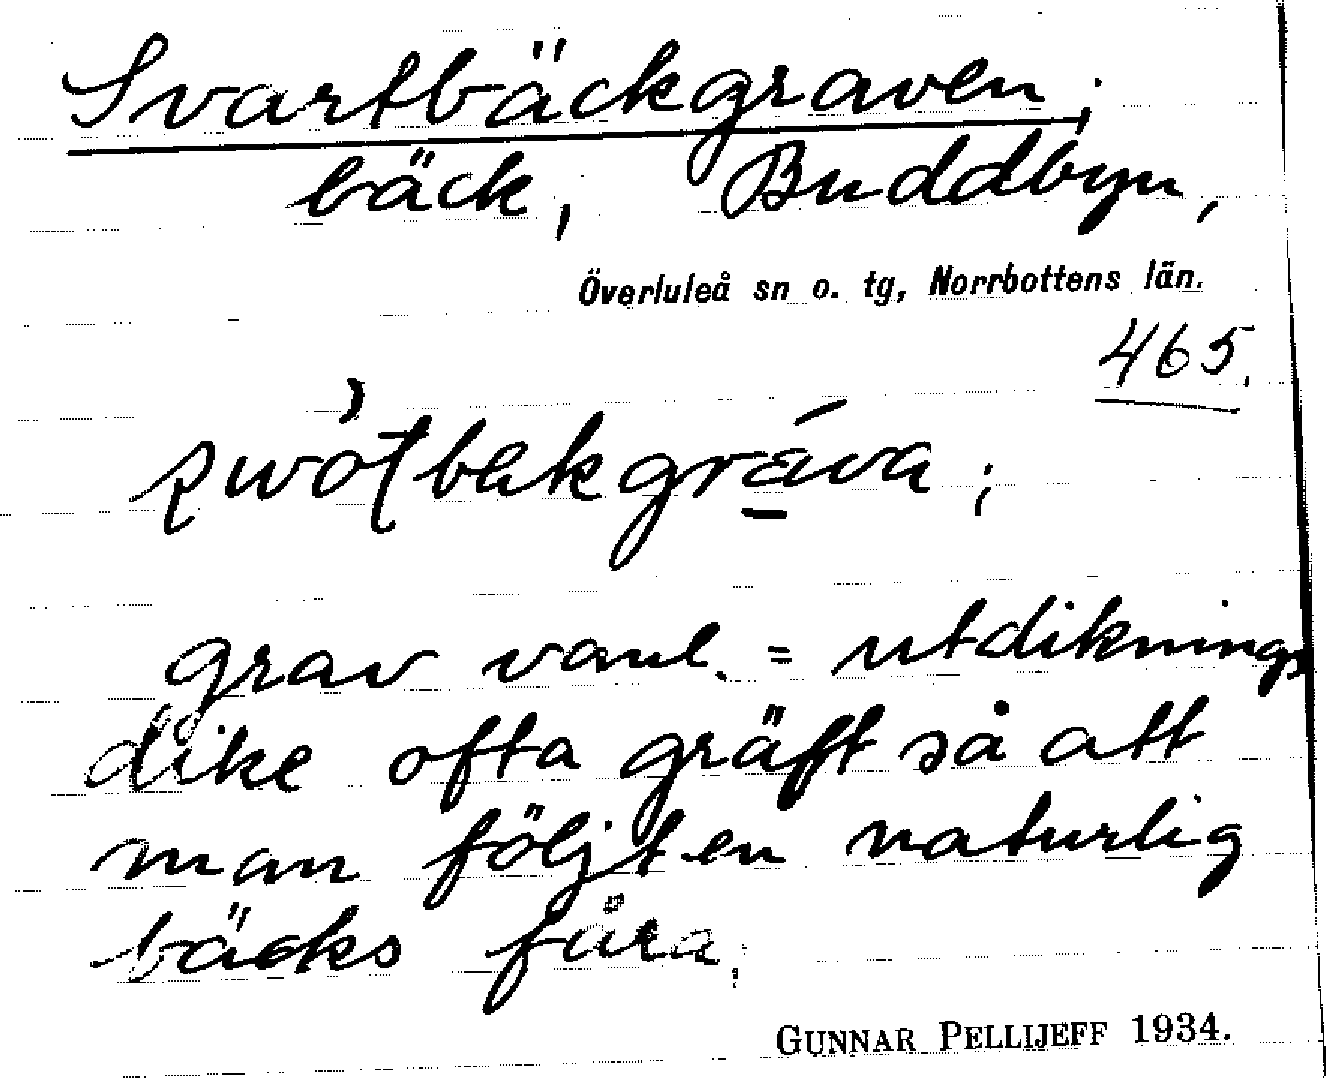 Svartbäckgraven;
bäck, Buddbyn,
Överluleå sn o. tg, Norrbottens län.
465.
grav vanl. = utdiknings
dike ofta gräft så att
man följt en naturlig
bäcks fåra.
GUNNAR PELLIJEFF 1934.